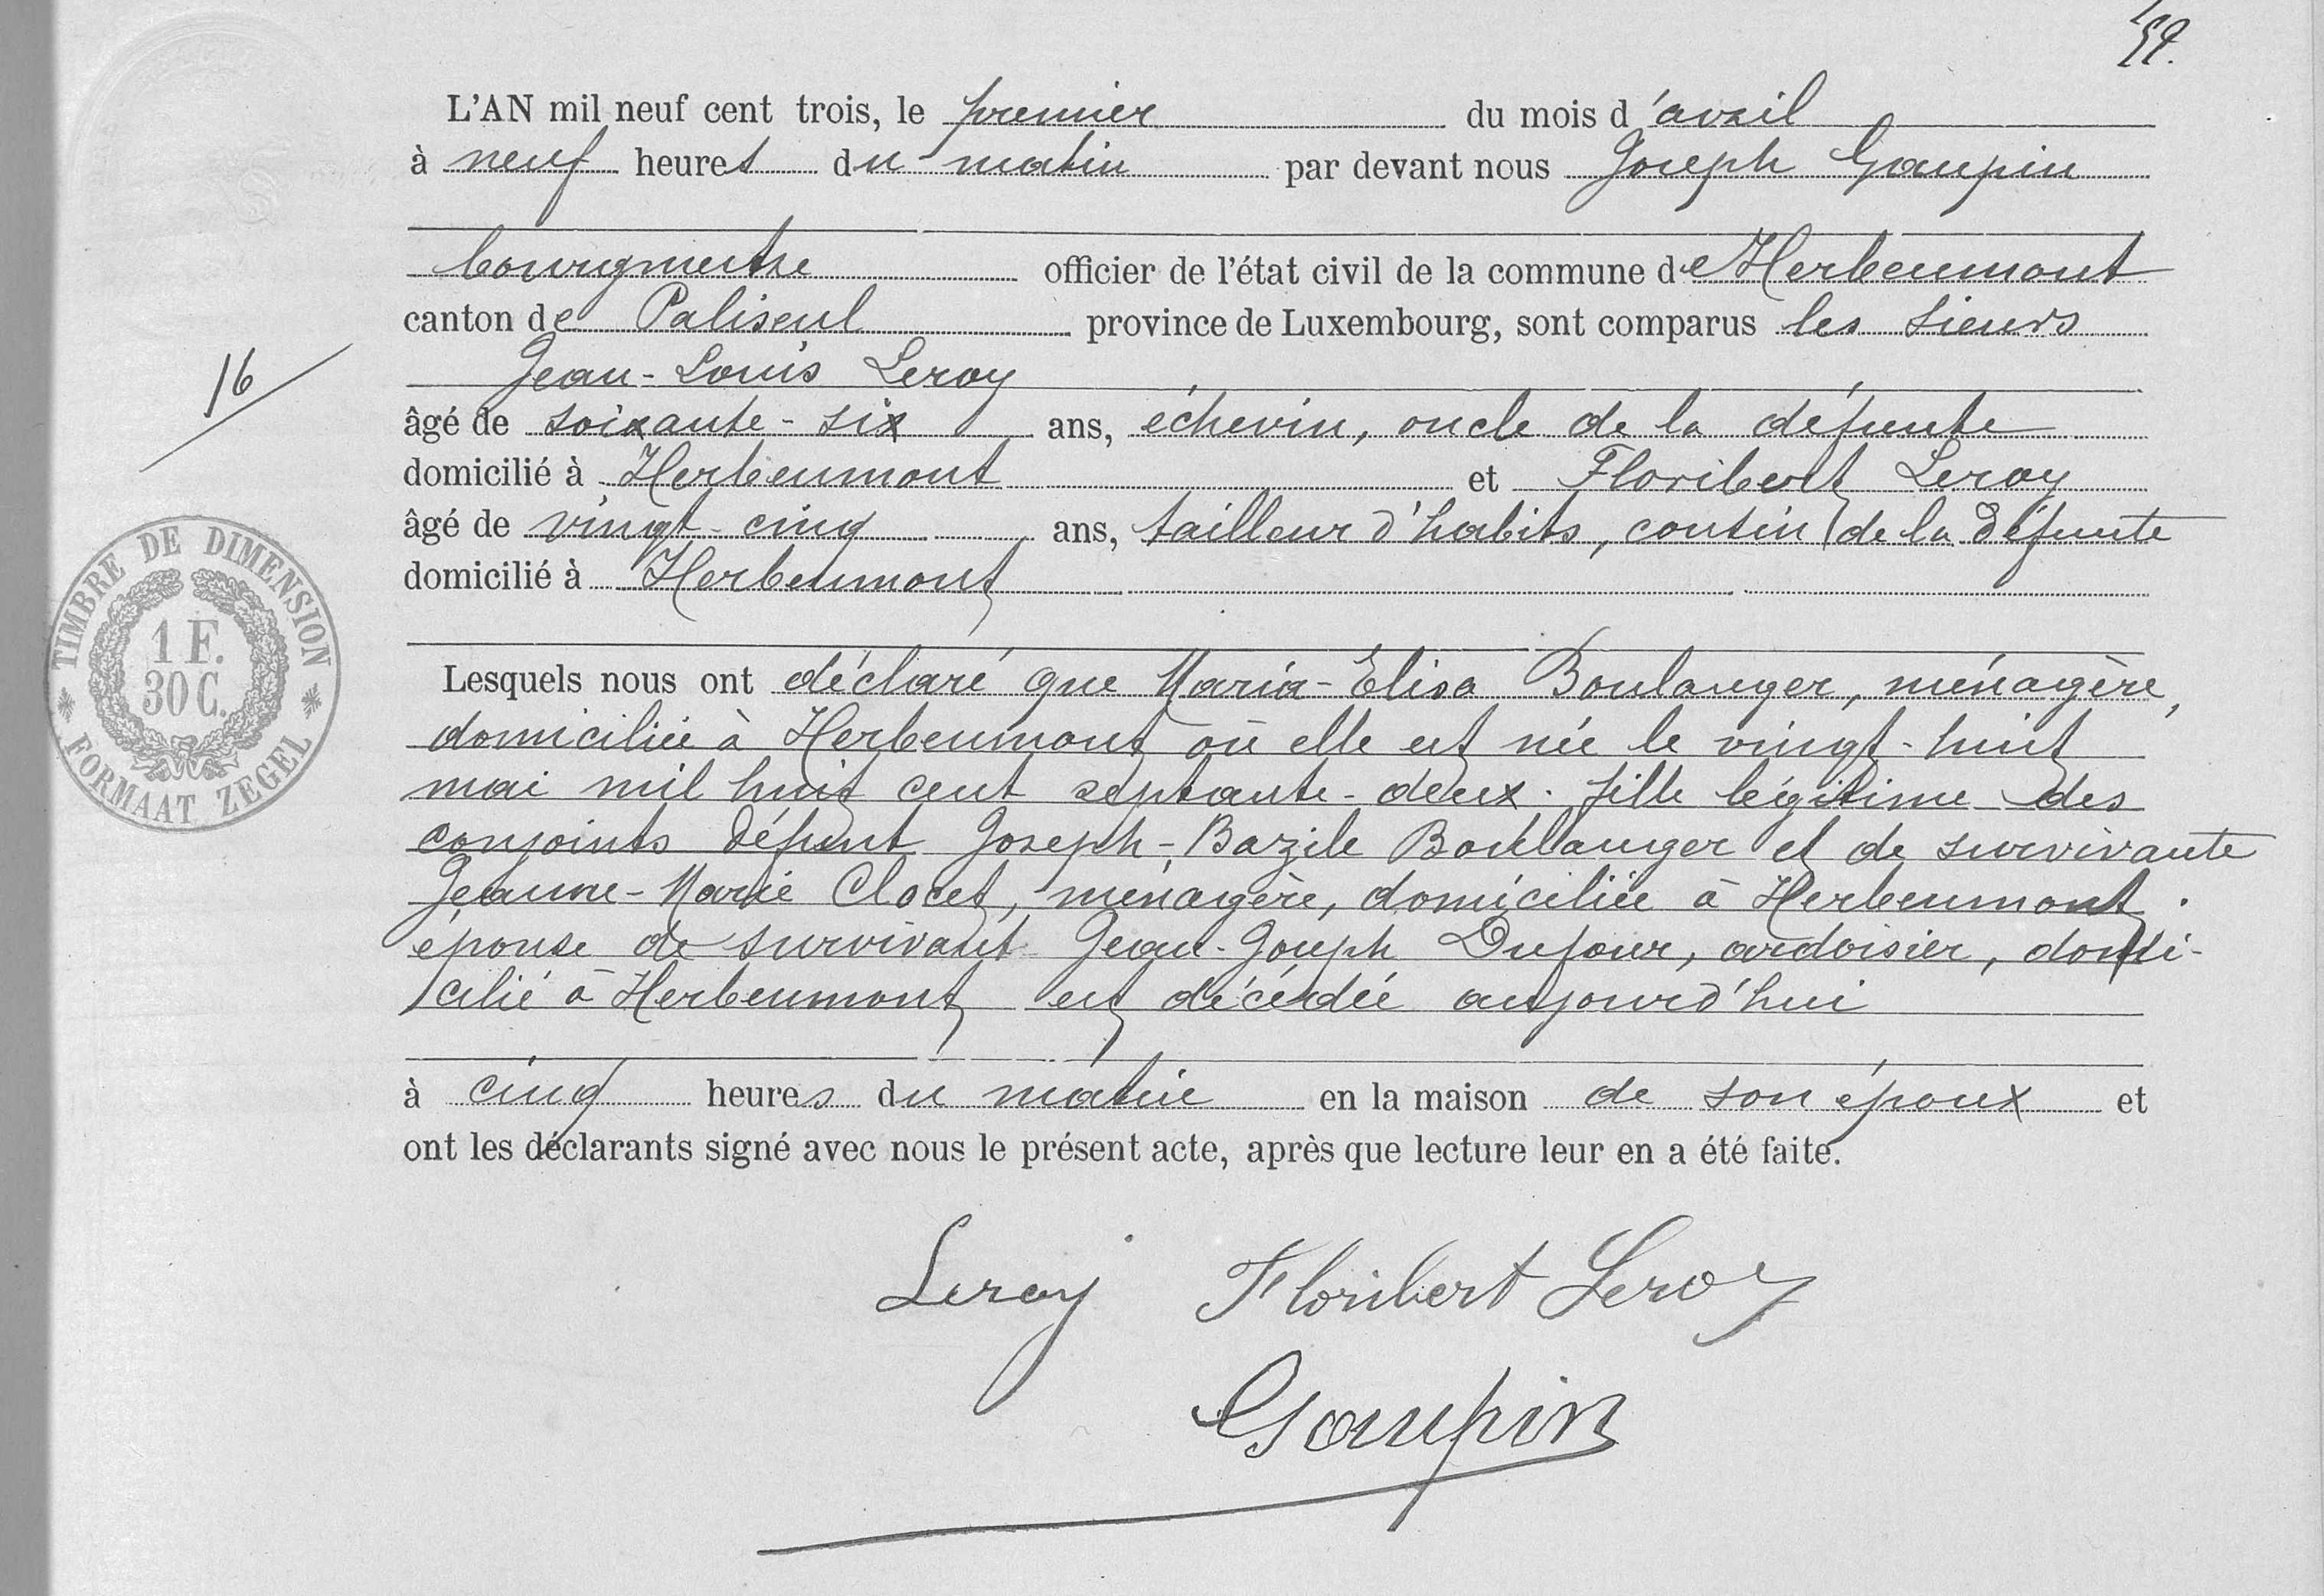 L'AN mil neuf cent trois, le premier du mois d'avril
à neuf heures du matin par devant nous Joseph Gaupin
bourgmestre officier de l'état civil de la commune de Herbeumont
canton de Paliseul province de Luxembourg, sont comparus les sieurs
16
Jean-Louis Leroy
âgé de soixante-six ans, échevin, oncle de la défunte
domicilié à Herbeumont et Floribert Leroy
âgé de vingt-cinq ans, tailleur d'habits, cousin de la défunte
domicilié à Herbeumont
TIMBRE DE DIMENSION
1 F.
30 C.
FORMAAT ZEGEL
Lesquels nous ont déclaré que Maria-Elisa Boulanger, ménagère,
domiciliée à Herbeumont où elle est née le vingt-huit
mai mil huit cent septante-deux. fille légitime des
conjoints défunt Joseph-Bazile Boulanger et de survivante
Jeanne-Marie Clocet, ménagère, domiciliée à Herbeumont.
épouse de survivant Jean-Joseph Dufour, ardoisier, domi-
cilié à Herbeumont est décédée aujourd'hui
à cinq heures du matin en la maison de son époux et
ont les déclarants signé avec nous le présent acte, après que lecture leur en a été faite.
Leroy Floribert Leroy
Gaupin